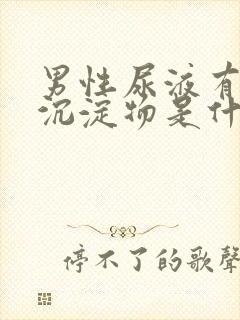 男性尿液有
沉淀物是什
停不了的歌聲